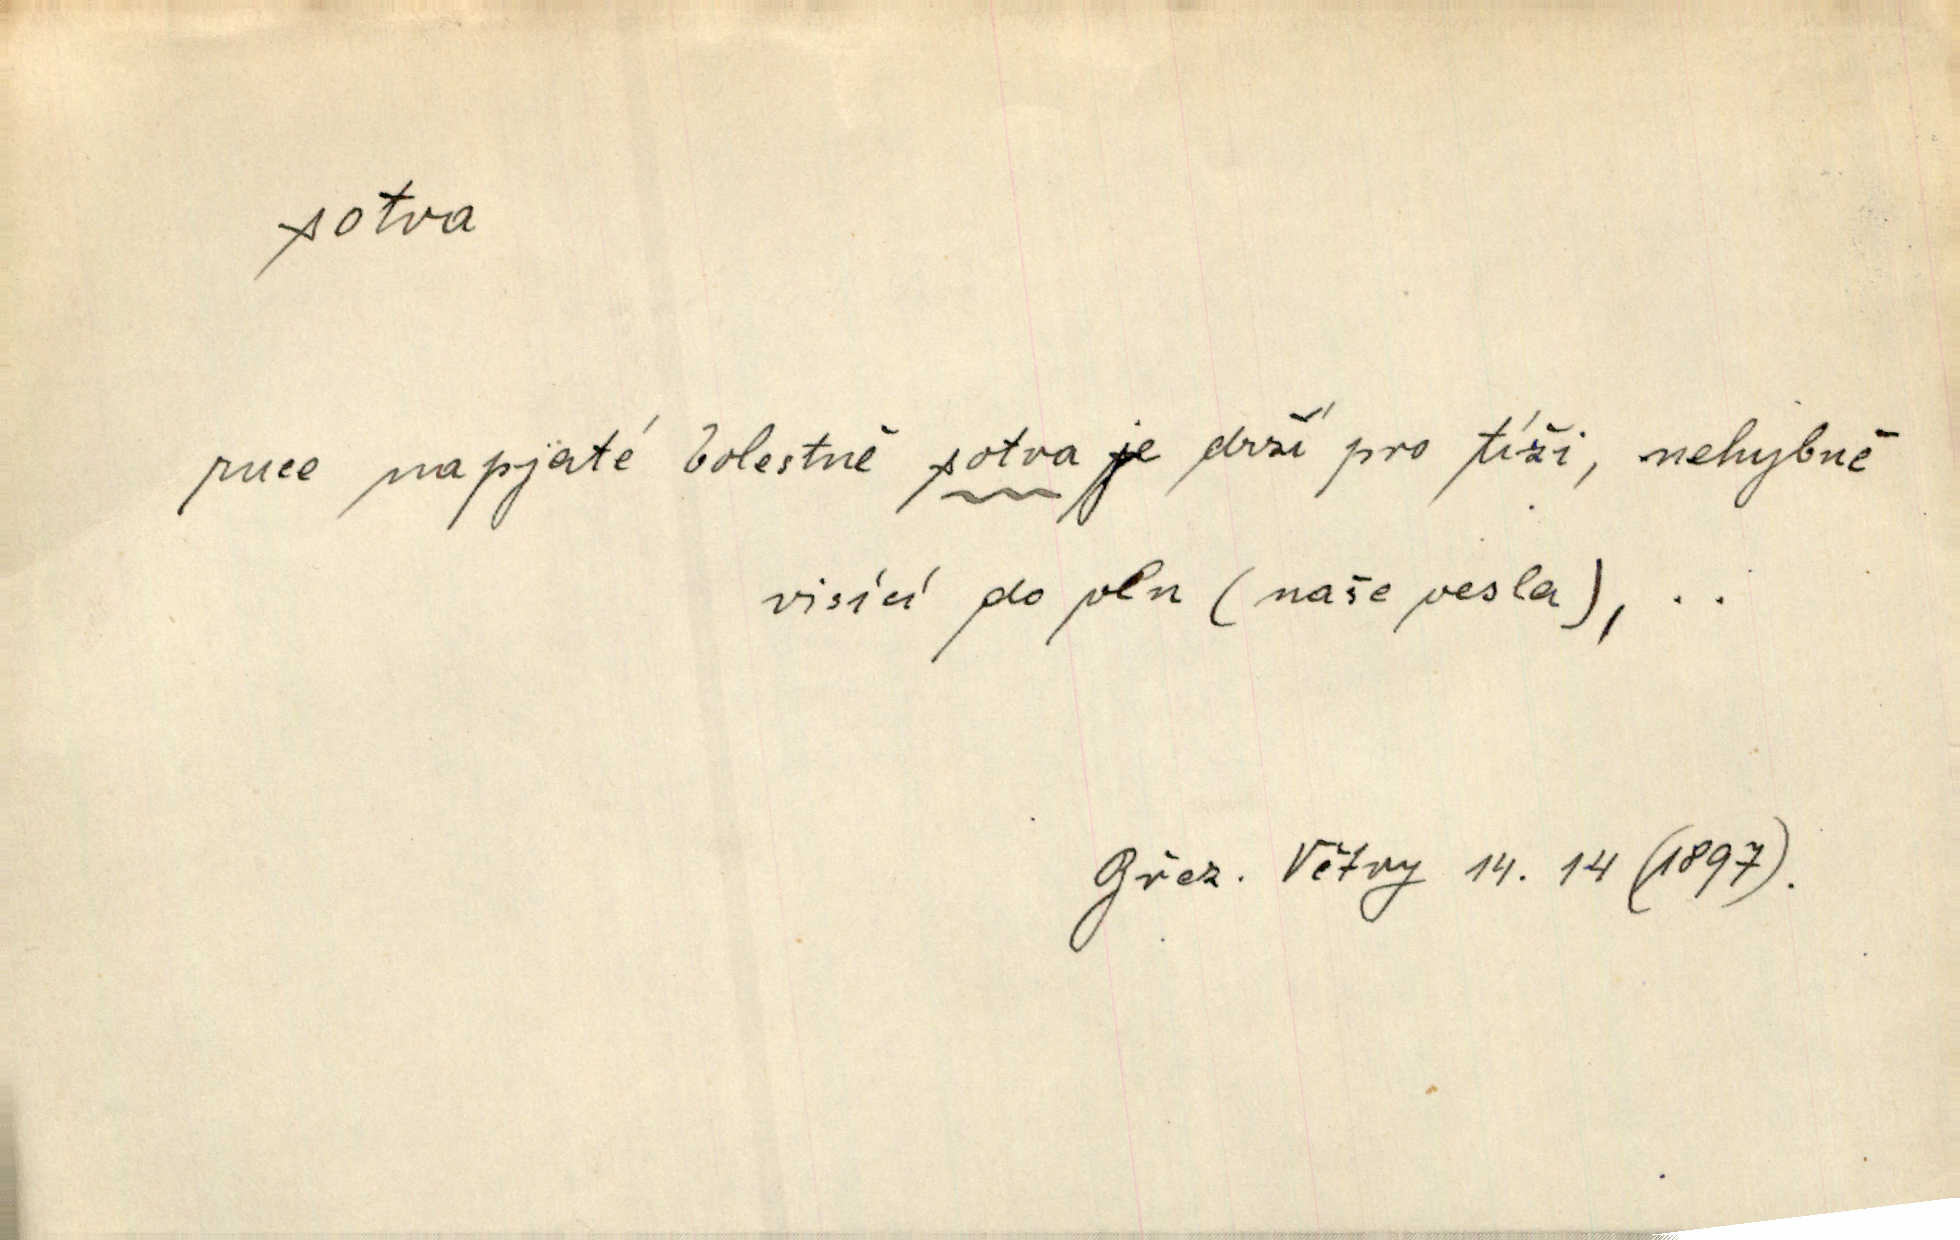 sotva
ruce napjaté bolestně sotva je drží pro tíži, nehybně
visící do vln (naše vesla), ..
Břez. Větry 14. 14 (1897).